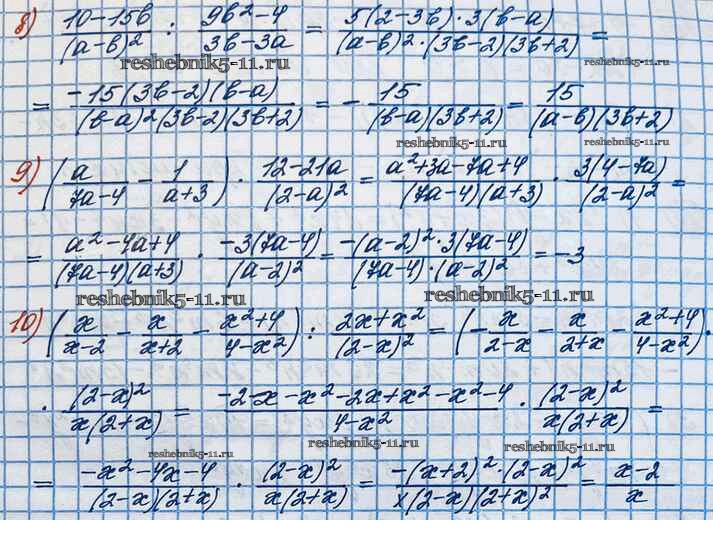 8) (10-15b)/(a-b)² : (9b²-4)/(3b-3a) = (5(2-3b)·3(b-a))/((a-b)²·(3b-2)(3b+2)) =
reshebnik5-11.ru
= (-15(3b-2)(b-a))/((b-a)²(3b-2)(3b+2)) = - 15/((b-a)(3b+2)) = 15/((a-b)(3b+2))
reshebnik5-11.ru reshebnik5-11.ru
9) (a/(7a-4) - 1/(a+3)) · (12-21a)/(2-a)² = (a²+3a-7a+4)/((7a-4)(a+3)) · (3(4-7a))/(2-a)² =
= (a²-4a+4)/((7a-4)(a+3)) · (-3(7a-4))/(a-2)² = (-(a-2)²·3(7a-4))/((7a-4)·(a-2)²) = -3
reshebnik5-11.ru reshebnik5-11.ru
10) (x/(x-2) - x/(x+2) - (x²+4)/(4-x²)) : (2x+x²)/(2-x)² = (- x/(2-x) - x/(2+x) - (x²+4)/(4-x²)) ·
· (2-x)²/(x(2+x)) = (-2-x-x²-2x+x²-x²-4)/(4-x²) · (2-x)²/(x(2+x)) =
reshebnik5-11.ru
reshebnik5-11.ru reshebnik5-11.ru
= (-x²-4x-4)/((2-x)(2+x)) · (2-x)²/(x(2+x)) = (-(x+2)²·(2-x)²)/(x(2-x)(2+x)²) = (x-2)/x